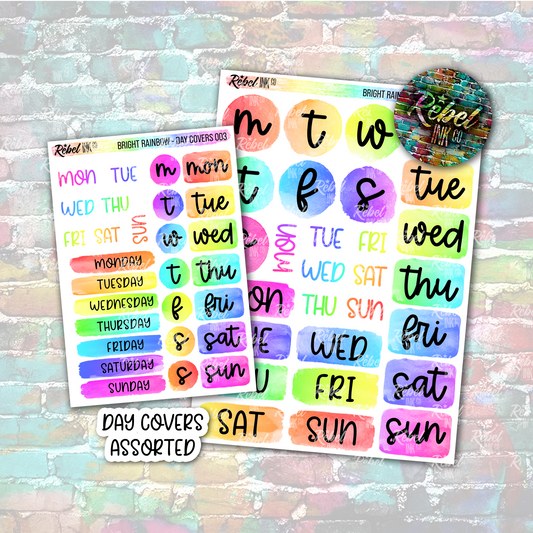 Rebel INK CO.
BRIGHT RAINBOW - DAY COVERS 003
MON TUE m mon
WED THU t tue
FRI SAT SUN w wed
MONDAY t thu
TUESDAY
WEDNESDAY f fri
THURSDAY
FRIDAY s sat
SATURDAY
SUNDAY s sun
Rebel INK CO.
BRIGHT RAINBOW
m t w
t f s tue
MON TUE FRI wed
WED SAT
THU SUN thu
mon
TUE WED fri
FRI sat
SAT SUN sun
Rebel
INK CO.
DAY COVERS
ASSORTED